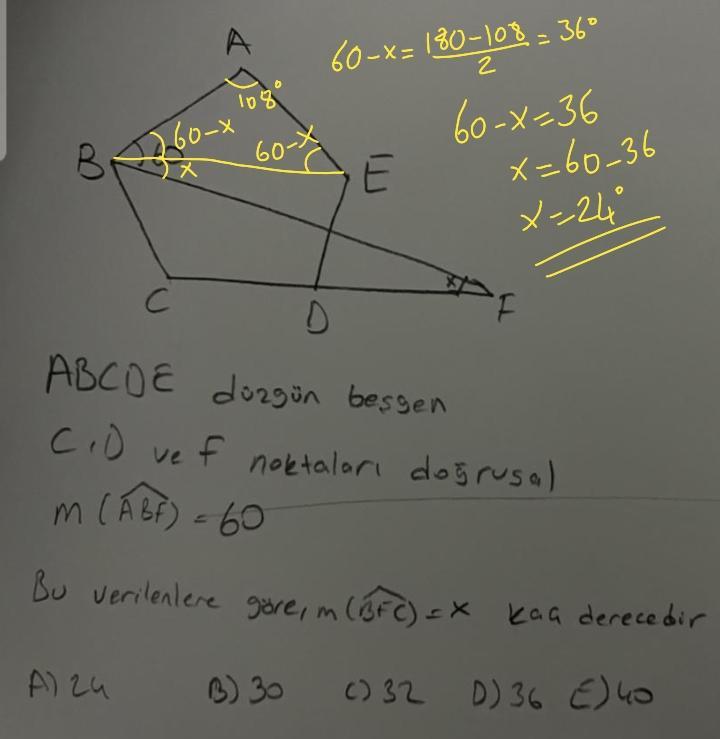 A
60-x = 180-108 / 2 = 36°
108°
60-x = 36
60-x
60
60-x
x = 60-36
B
x
E
x = 24°
x
C
D
F
ABCDE düzgün beşgen
C,D ve f noktaları doğrusal
m(ABF) = 60
Bu verilenlere göre, m(BFC) = x kaç derecedir
A) 24 B) 30 C) 32 D) 36 E) 40